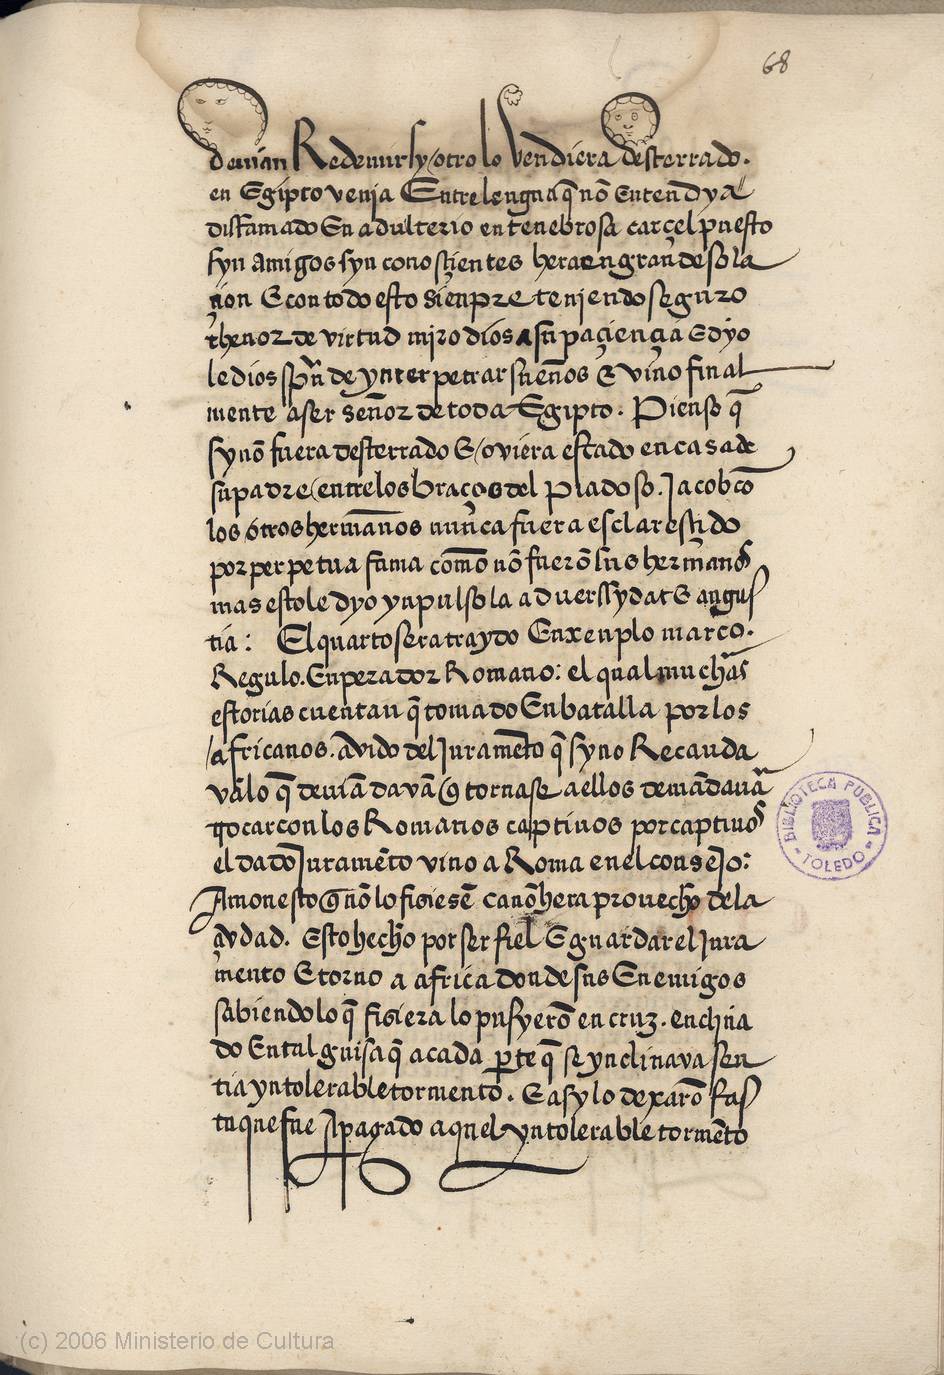 68
devian Redemir sy otro lo vendiera desterrado.
en Egipto venja Entre lengua q̃ nõ Entendya
disfamado En adulterio en tenebrosa carçel puesto
syn amigos syn conosçientes hera en grande sola
çion E con todo esto sienpre teniendo seguro
thenor de virtud miro dios a su paçiençia E dyo
le dios spũ de ynterpetrar sueños E vino final
mente a ser señor de toda Egipto. Pienso q̃
sy nõ fuera desterrado E oviera estado en casa de
su padre entre los braços del piadoso. Jacob cõ
los otros hermanos nunca fuera esclaresçido
por perpetua fama como nõ fuerõ sus hermanos
mas esto le dyo ynpulso la adverssydat E angus
tia: El quarto sera traydo Enxenplo marco.
Regulo. Enperador Romano: el qual muchas
estorias cuentan q̃ tomado En batalla por los
africanos. avido del Juramẽto q̃ sy no Recauda
va lo q̃ deviã davã q̃ tornase a ellos demãdavã
trocar con los Romanos captivos por captivos
el dado Juramẽto vino a Roma en el consejo:
Amonesto q̃ nõ lo fisiesẽ ca nõ hera provecho de la
çivdad. Esto hecho por ser fiel E guardar el Jura
mento E torno a africa donde sus Enemigos
sabiendo lo q̃ fisiera lo pusyerõ en cruz. enclina
do En tal guisa q̃ a cada parte q̃ se ynclinava sen
tia yntolerable tormento. E asy lo dexarõ fas
ta que fue Apagado aquel yntolerable tormẽto
BIBLIOTECA PÚBLICA
TOLEDO
(c) 2006 Ministerio de Cultura